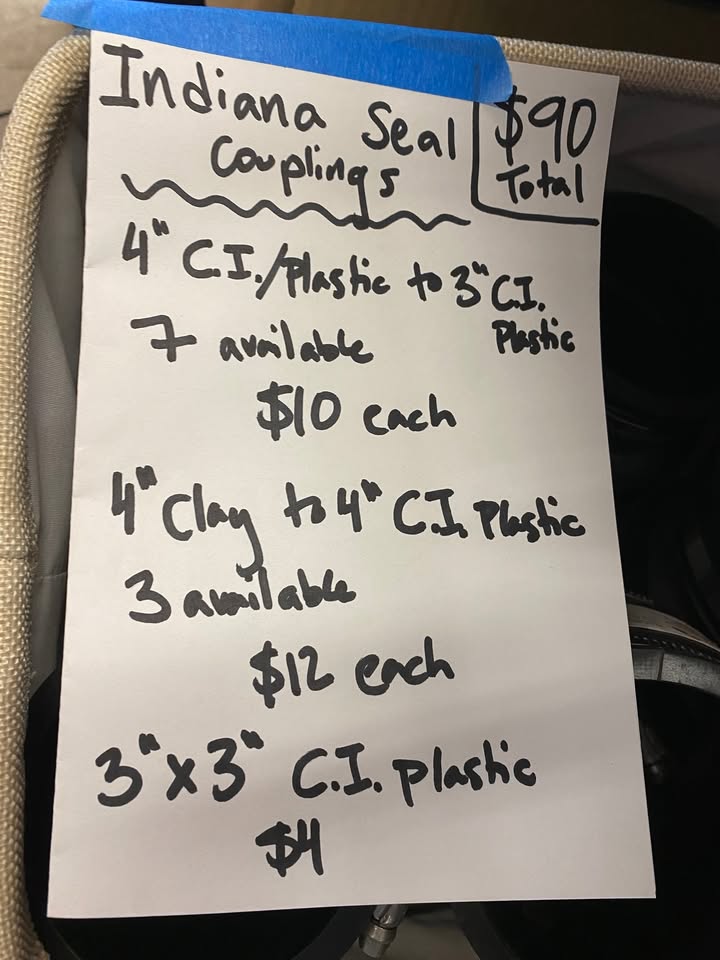 Indiana Seal
Couplings
$90
Total
4" C.I./Plastic to 3" C.I.
Plastic
7 available
$10 each
4" Clay to 4" C.I. Plastic
3 available
$12 each
3" x 3" C.I. plastic
$4